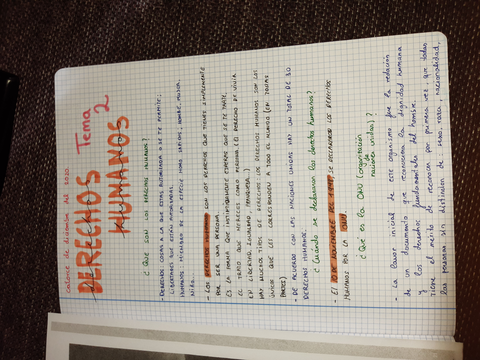 catorce de diciembre del 2020
Tema 2
DERECHOS HUMANOS
¿QUE SON LOS DERECHOS HUMANOS?
- DERECHOS: COSAS A LA QUE ESTAS AUTORIZADA O SE TE PERMITE;
LIBERTADES QUE ESTÁN AMPARADAS.
HUMANOS: MIEMBRO DE LA ESPECIE HOMO SAPIENS; HOMBRE, MUJER,
NIÑO.
- LOS DERECHOS HUMANOS SON LOS DERECHOS QUE TIENES SIMPLEMENTE
POR SER UNA PERSONA
ES LA FORMA QUE INSTINTIVAMENTE ESPERAS QUE SE TE TRATE.
EL TRATO QUE MERECES COMO PERSONA (EL DERECHO DE VIVIR
EN LIBERTAD, IGUALDAD,
HAY MUCHOS TIPOS DE DERECHOS. LOS DERECHOS HUMANOS SON LOS
ÚNICOS QUE LES CORRESPONDEN A TODO EL MUNDO (EN TODAS
PARTES)
- DE ACUERDO CON LAS NACIONES UNIDAS HAY UN TOTAL DE 30
DERECHOS HUMANOS.
¿Cuándo se declararon los derechos humanos?
- EL 10 DE DE 1948 SE DECLARARON LOS DERECHOS
HUMANOS POR LA ONU.
¿Que es la ONU (organización de naciones unidas)?
- La labor inicial de este organismo fue la redacion
de un documento que reconociera la dignidad humana
y los derechos fundamentales del hombre.
Tiene el merito de reconocer por primera vez que todas
las personas sin distincion de sexo, raza, nacionalidad,